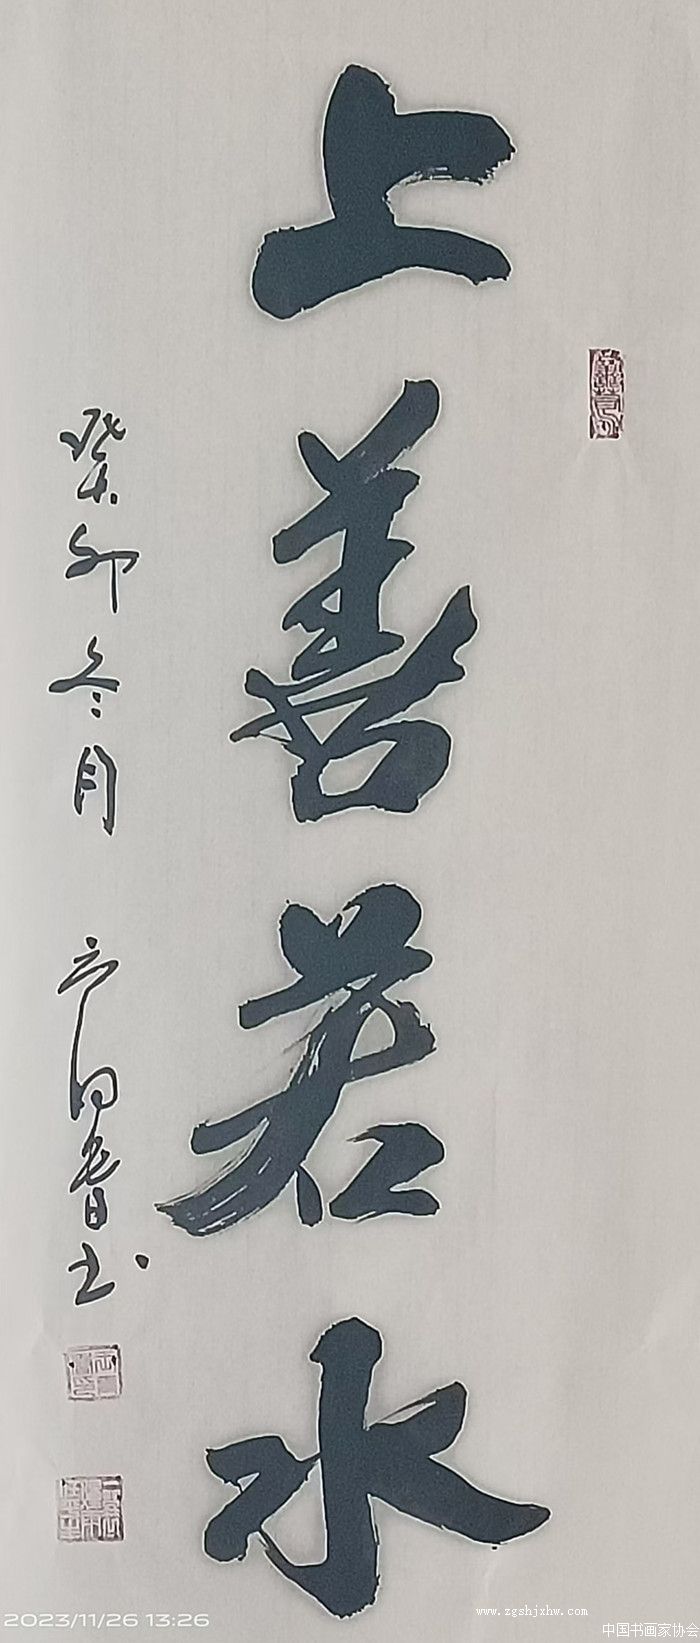 上善若水
癸卯冬月
书
2023/11/26 13:26
www.zgshjxhw.com
中国书画家协会